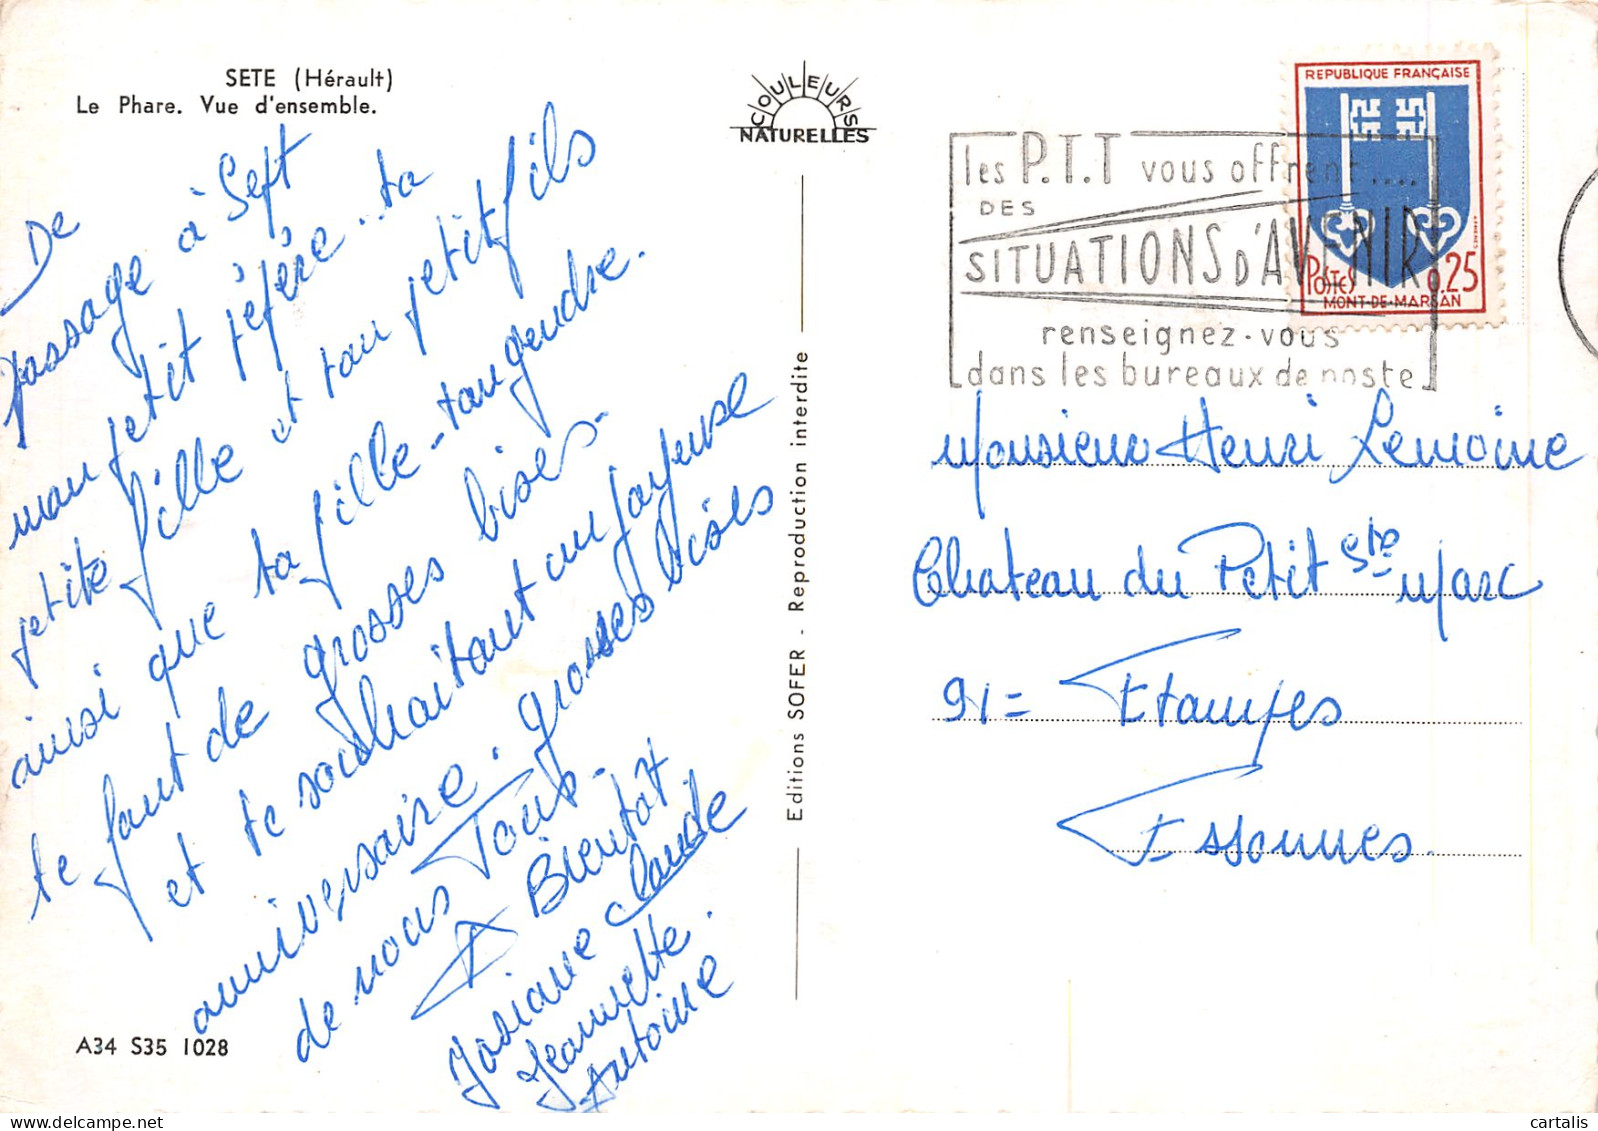 SETE (Hérault)
Le Phare. Vue d'ensemble.
COULEURS
NATURELLES
De
passage à Seft
mon petit péfère.. ta
petite fille et tau petit fils
ainsi que ta fille - tau gendre.
te faut de grosses bises -
et te souhaitant au joyeuse
anniversaire. grosses bises
de nous Tous -
A Bientot
Josiane Claude
Jeannette.
Antoine
A34 S35 1028
Editions SOFER - Reproduction interdite
les P.T.T vous offrent ....
DES
SITUATIONS D'AVENIR
renseignez-vous
dans les bureaux de poste
REPUBLIQUE FRANÇAISE
POSTES 0,25
MONT-DE-MARSAN
Monsieur Henri Lemoine
Chateau du Petit Ste Marc
91= Etampes
Essonnes.
cartalis